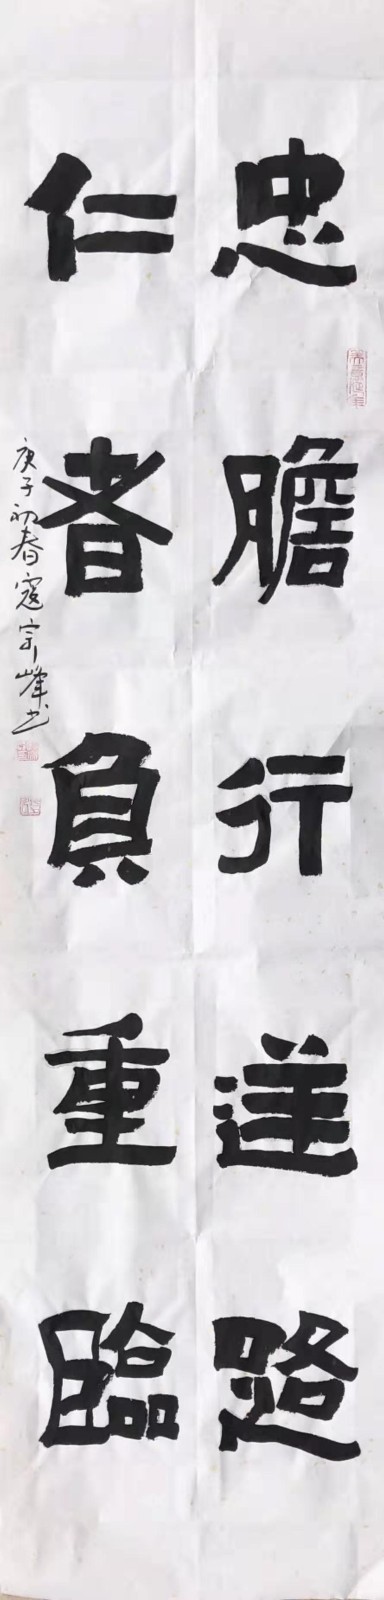 忠膽行逆路
仁者負重臨
庚子初春寇宗峰书